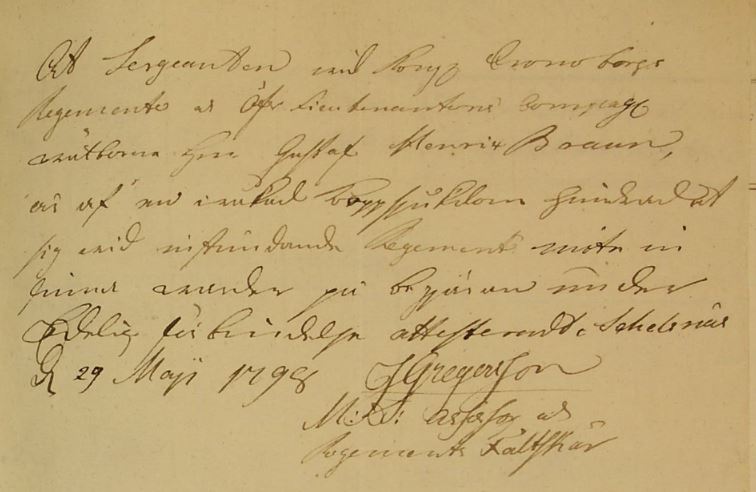 At Sergeanten wid Kongl Cronobergs
Regemente och Öfr Lieutenantens Compagn
wälborne Herr Gustaf Henrik Braun,
är af en sjukdom hindrad at
sig wid instundande Regements möte in
finna warder på begäran under
Edelig förbindelse attesteradt. Schelsnäs
d 29 Maji 1798 Gregersson
M: D: Assessor och
Regements Fältskär